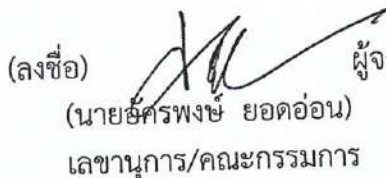 (ลงชื่อ) ผู้จ
(นายอัครพงษ์ ยอดอ่อน)
เลขานุการ/คณะกรรมการ